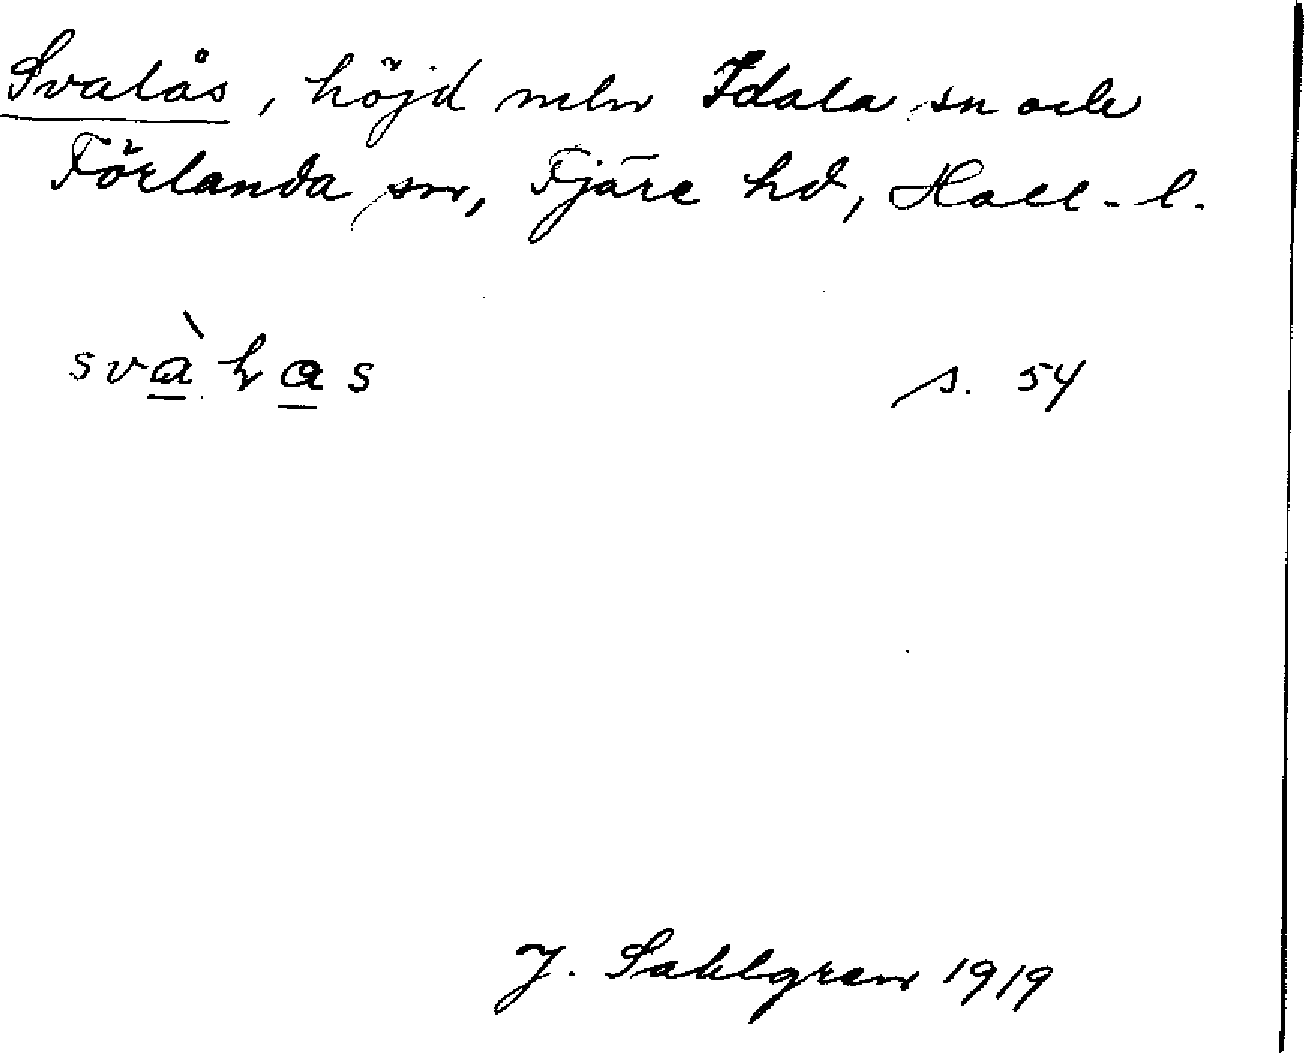 Svalås, höjd mln Idala sn och
Förlanda sn, Fjäre hd, Hall. l.
svàɫas s. 54
J. Sahlgren 1919